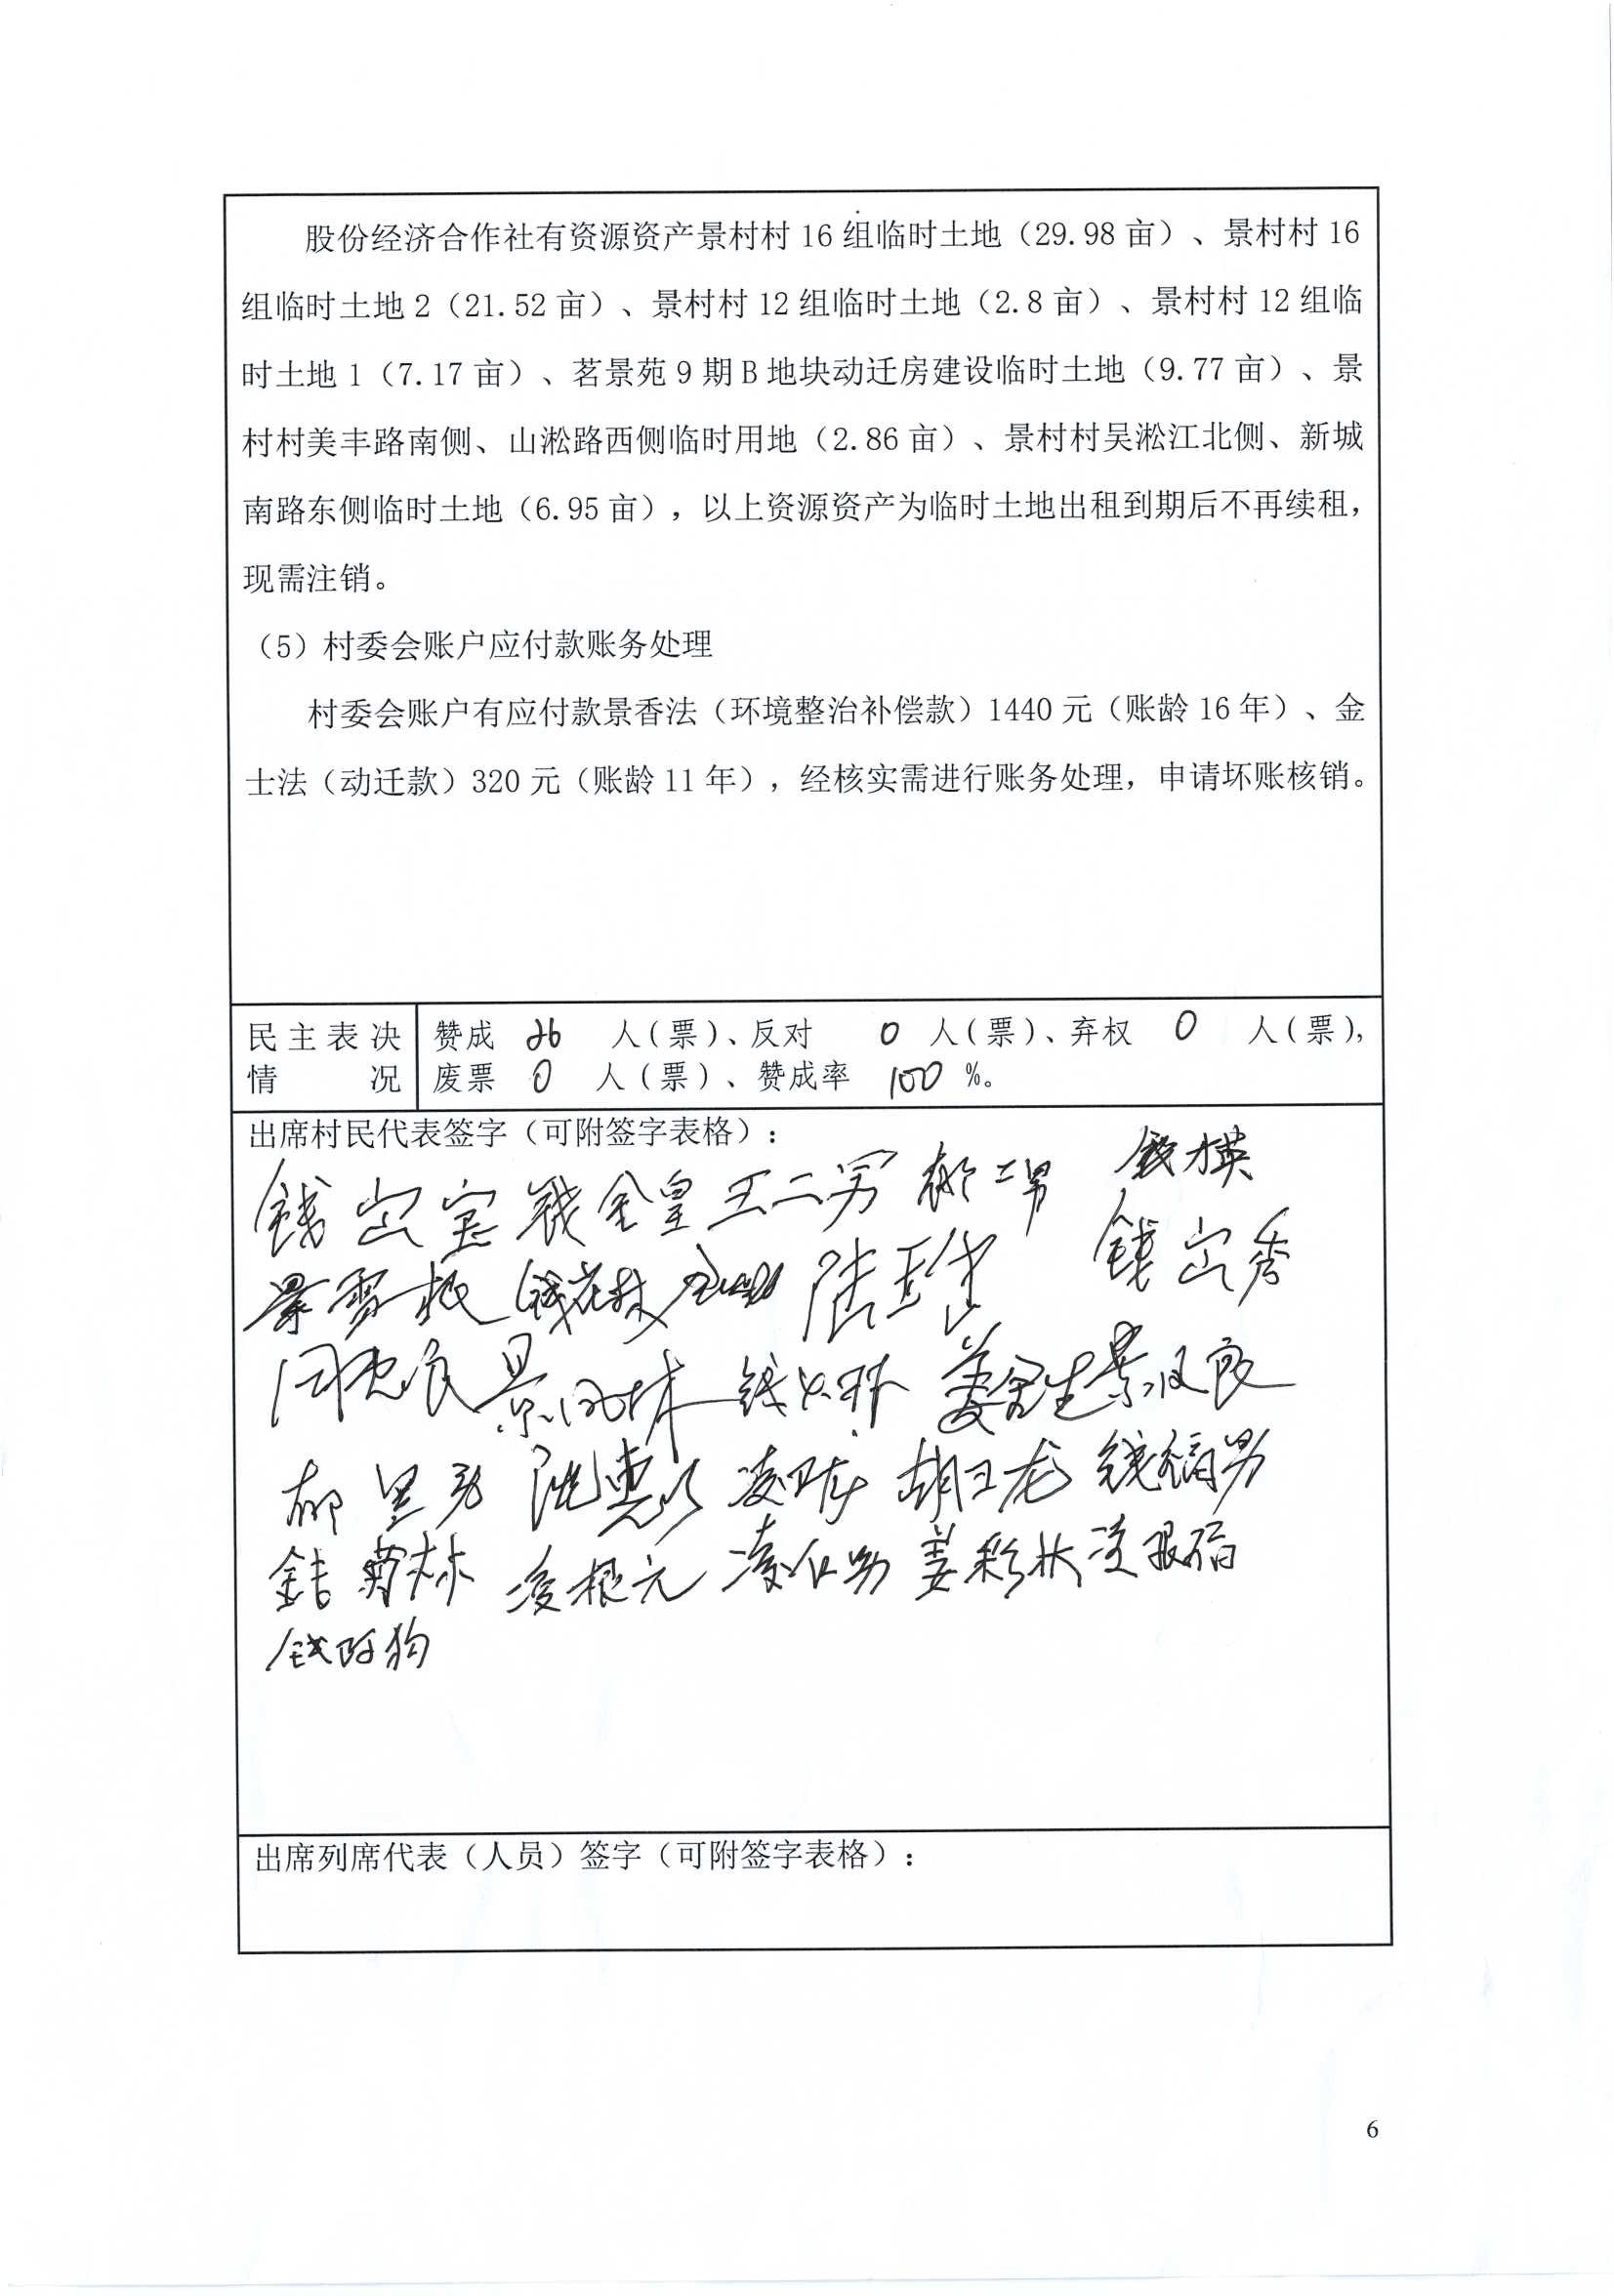 股份经济合作社有资源资产景村村 16 组临时土地（29.98 亩）、景村村 16
组临时土地 2（21.52 亩）、景村村 12 组临时土地（2.8 亩）、景村村 12 组临
时土地 1（7.17 亩）、茗景苑 9 期 B 地块动迁房建设临时土地（9.77 亩）、景
村村美丰路南侧、山淞路西侧临时用地（2.86 亩）、景村村吴淞江北侧、新城
南路东侧临时土地（6.95 亩），以上资源资产为临时土地出租到期后不再续租，
现需注销。
（5）村委会账户应付款账务处理
村委会账户有应付款景香法（环境整治补偿款）1440 元（账龄 16 年）、金
士法（动迁款）320 元（账龄 11 年），经核实需进行账务处理，申请坏账核销。
民主表决情况
赞成 26 人(票)、反对 0 人(票)、弃权 0 人(票)，
废票 0 人(票)、赞成率 100 %。
出席村民代表签字（可附签字表格）：
钱 宝 钱金皇 王二男 二男 钱 英
景雪根 钱 林 陆 珍 钱 秀
周 良 景凤林 钱 姜 生 景 良
惠 凌 胡 龙 钱 男
林 凌根元 凌 男 姜彩 凌根
钱阿狗
出席列席代表（人员）签字（可附签字表格）：
6